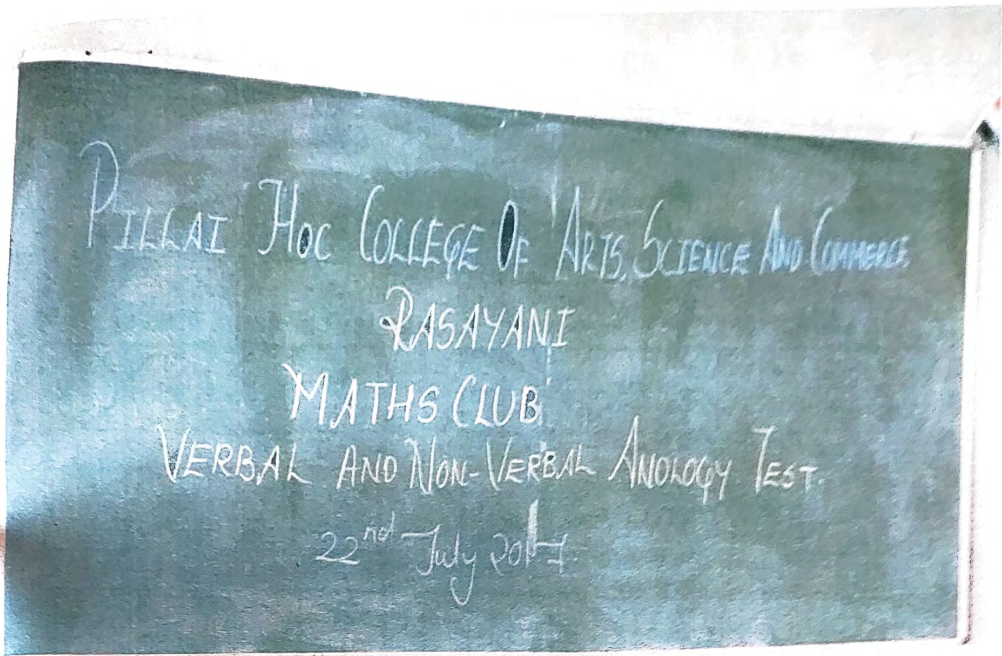 PILLAI HOC COLLEGE OF ARTS, SCIENCE AND COMMERCE
RASAYANI
MATHS CLUB
VERBAL AND NON-VERBAL ANOLOGY TEST.
22nd July 2017.